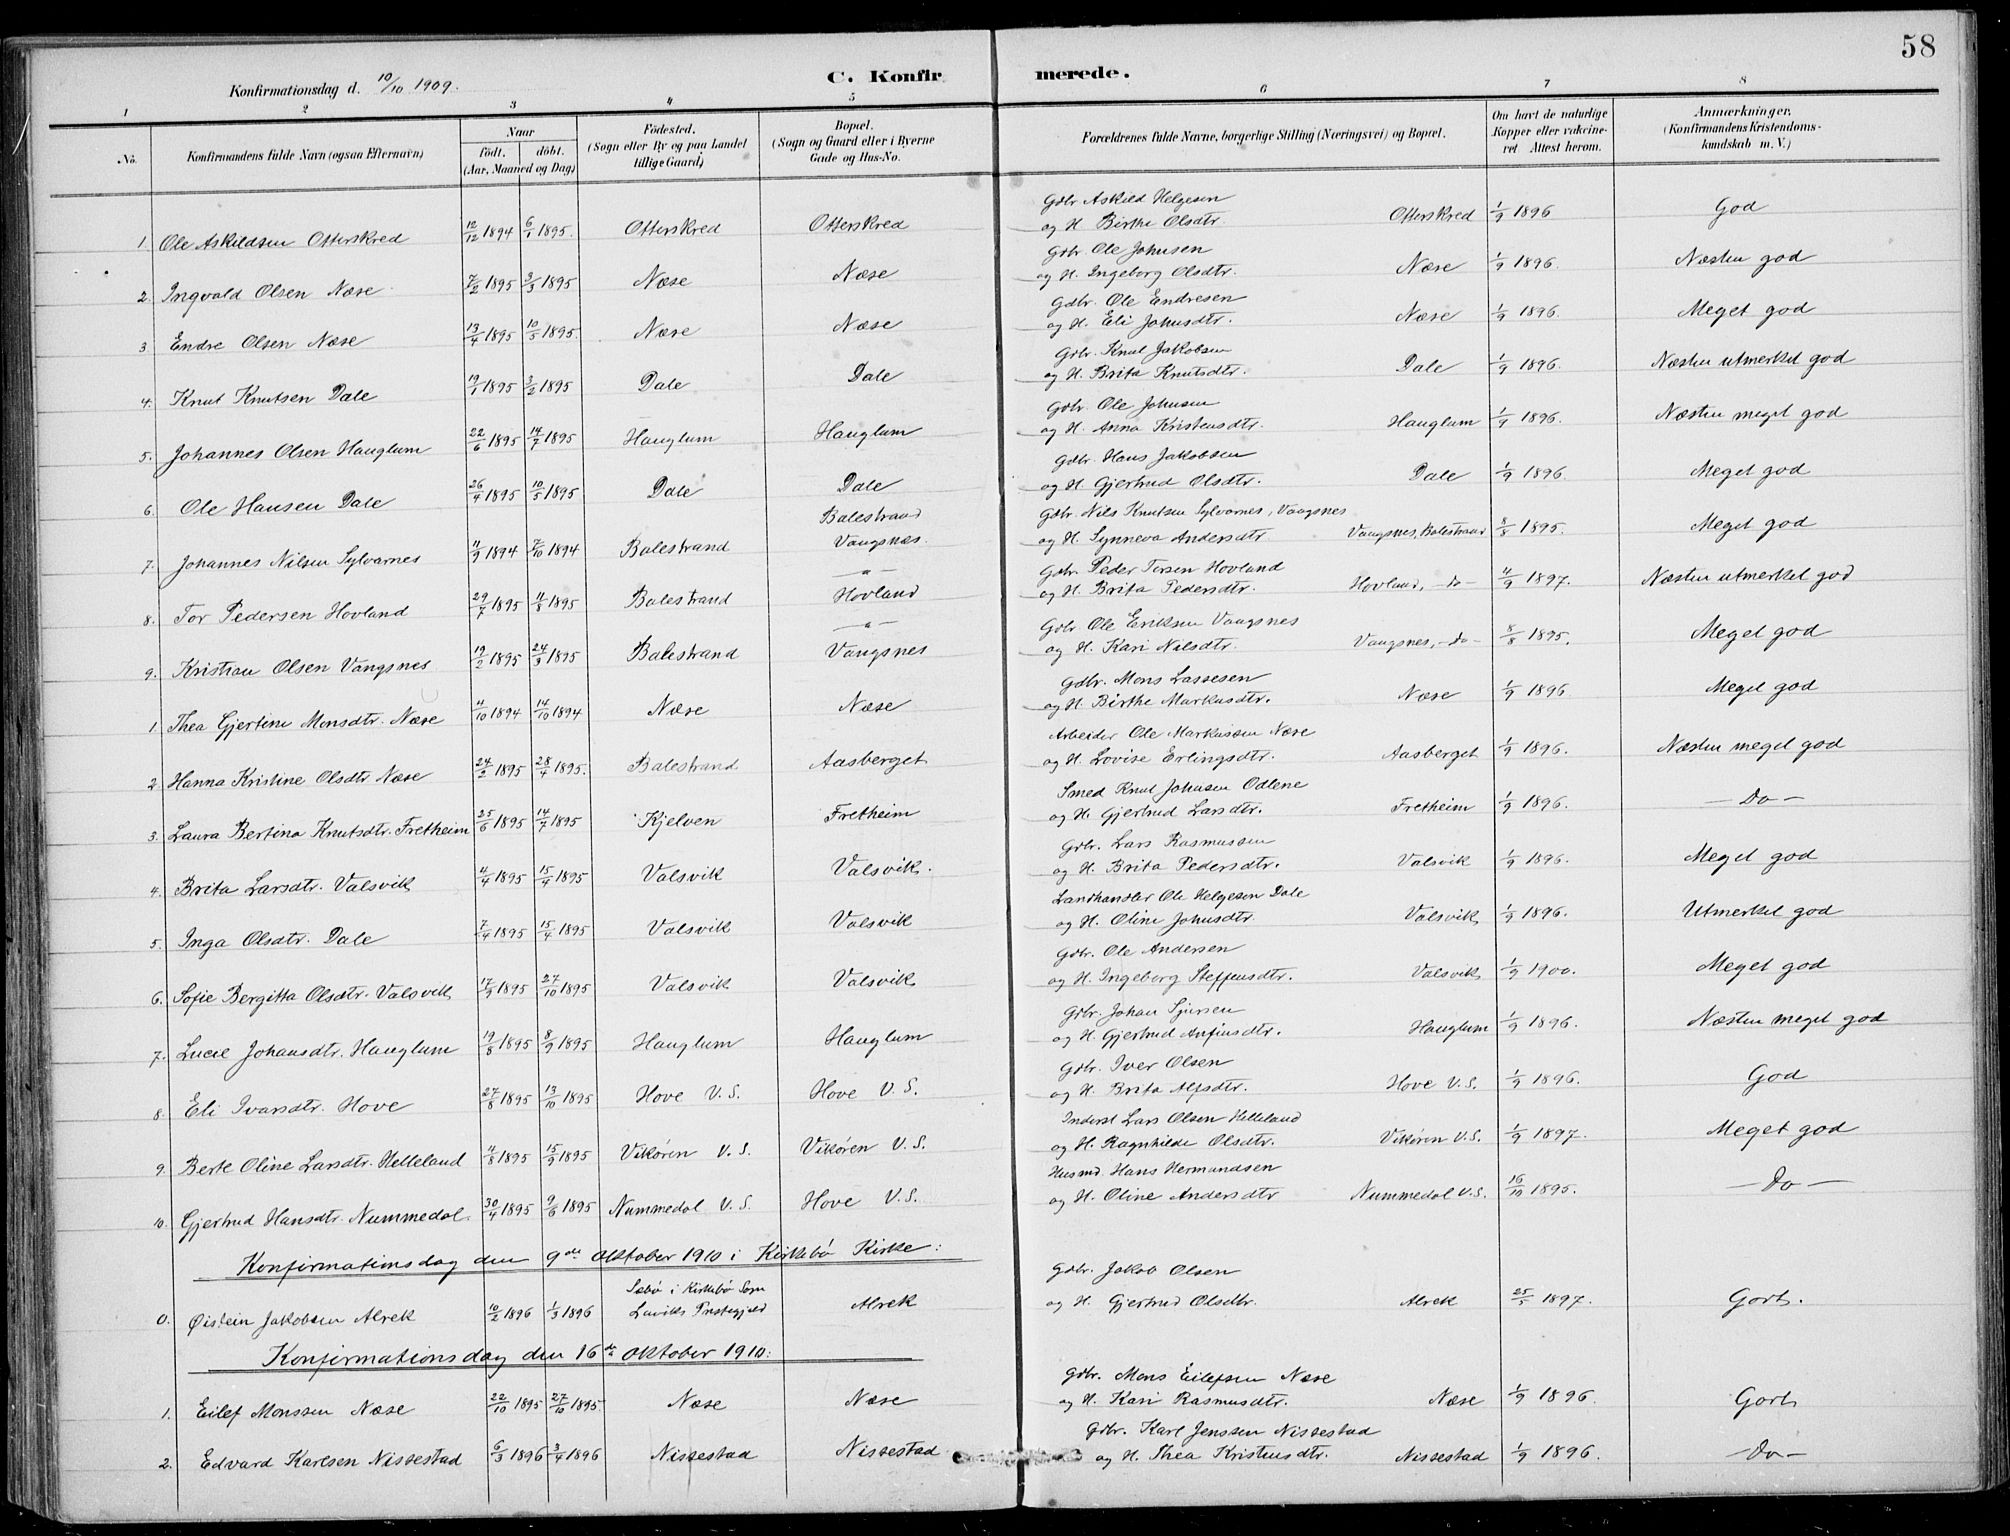 58
Konfirmationsdag d. 10/10 1909.
C. Konfirmerede.
1 2 3 4 5 6 7 8
No. Konfirmandens fulde Navn (ogsaa Efternavn) Naar født. døbt. (Aar, Maaned og Dag) Fødested. (Sogn eller By og paa Landet tillige Gaard) Bopæl. (Sogn og Gaard eller i Byerne Gade og Hus-No. Forældrenes fulde Navne, borgerlige Stilling (Næringsvei) og Bopæl. Om havt de naturlige Kopper eller vakcineret. Attest herom. Anmærkninger. (Konfirmandens Kristendomskundskab m. V.)
Gdbr Askild Helgesen
1. Ole Askildsen Otterskred 12/12 1894 6/1 1895. Otterskred Otterskred og H. Birthe Olsdtr. Otterskred 1/9 1896 God
Gdbr. Ole Johnsen
2. Ingvald Olsen Næse 7/2 1895 3/3 1895 Næse Næse og H. Ingeborg Olsdtr. Næse 1/9 1896. Næsten god
Gdbr. Ole Endresen
3. Endre Olsen Næse 13/4 1895 10/5 1895. Næse Næse og H. Eli Johnsdtr. Næse 1/9 1896. Meget god
Gdbr. Knut Jakobsen
4. Knut Knutsen Dale 19/1 1895 3/2 1895 Dale Dale og H. Brita Knutsdtr. Dale 1/9 1896. Næsten utmerket god
Gdbr. Ole Johnsen
5. Johannes Olsen Hauglum 22/6 1895 14/7 1895 Hauglum Hauglum og H. Anna Kristensdtr. Hauglum 1/9 1896. Næsten meget god
Gdbr. Hans Jakobsen
6. Ole Hansen Dale 26/4 1895 10/5 1895 Dale Dale og H. Gjertrud Olsdtr. Dale 1/9 1896. Meget god
Balestrand Gdbr. Nils Knutsen Sylvarnes, Vangsnes
7. Johannes Nilsen Sylvarnes 11/9 1894 7/10 1894 Balestrand Vangsnæs. og H. Synneva Andersdtr Vangsnes, Balestrand 8/8 1895. Meget god
— " — Gdbr. Peder Torsen Hovland
8. Tor Pedersen Hovland 29/7 1895 11/8 1895 Balestrand Hovland og H. Brita Pedersdtr. Hovland, - do - 4/9 1897. Næsten utmerket god
— " — Gdbr. Ole Eriksen Vangsnes
9. Kristian Olsen Vangsnes 19/2 1895 24/3 1895 Balestrand Vangsnes og H. Kari Nilsdtr. Vangsnes, - do - 8/8 1895. Meget god
Gdbr. Mons Lassesen
1. Thea Gjertine Monsdtr. Næse 4/10 1894 14/10 1894 Næse Næse og H. Birthe Markusdtr. Næse 1/9 1896 Meget god
Arbeider Ole Markussen Næse
2 Hanna Kristine Olsdtr Næse 24/2 1895 28/4 1895. Balestrand Aasberget og H. Lovise Erlingsdtr. Aasberget 1/9 1896. Næsten meget god
Smed Knut Johnsen Odlene
3. Laura Bertina Knutsdtr. Fretheim 25/6 1895 14/7 1895 Kjelven Fretheim og H. Gjertrud Larsdtr. Fretheim 1/9 1896. — Do —
Gdbr. Lars Rasmussen
4. Brita Larsdtr. Valsvik 4/4 1895 15/4 1895 Valsvik Valsvik. og H. Brita Pedersdtr. Valsvik 1/9 1896. Meget god
Landhandler Ole Helgesen Dale
5. Inga Olsdtr. Dale 7/4 1895 15/4 1895 Valsvik Valsvik og H. Oline Johnsdtr. Valsvik 1/9 1896. Utmerket god
Gdbr. Ole Andersen
6. Sofie Bergitta Olsdtr. Valsvik 17/9 1895 27/10 1895 Valsvik Valsvik og H. Ingeborg Steffensdtr. Valsvik 1/9 1900. Meget god
Gdbr. Johan Sjursen
7. Lucie Johansdtr. Hauglum 19/8 1895 8/9 1895 Hauglum Hauglum og H. Gjertrud Anfinsdtr. Hauglum 1/9 1896. Næsten meget god
Gdbr. Iver Olsen
8. Eli Ivarsdtr. Hove 27/8 1895 13/10 1895 Hove V. S. Hove V. S. og H. Brita Alfsdtr. Hove V. S. 1/9 1896. God
Inderst Lars Olsen Helleland
9. Berte Oline Larsdtr. Helleland 4/8 1895 15/9 1895 Vikören V. S. Vikören V. S. og H. Ragnhilde Olsdtr. Vikören V. S. 1/9 1897. Meget god
Husmd. Hans Hermundsen
10. Gjertrud Hansdtr. Nummedal. 30/4 1895 9/6 1895 Nummedal V. S. Hove V. S. og H. Oline Andersdtr Nummedal V. S. 16/10 1895. — Do —
Konfirmationsdag den 9de oktober 1910 i Kirkebø Kirke:
Sæbø i Kirkebø Sogn Gdbr. Jakob Olsen
0. Øistein Jakobsen Alrek 10/2 1896 1/3 1896 Laviks Prestegjeld Alrek og H. Gjertrud Olsdtr. Alrek 25/5 1897. Godt.
Konfirmationsdag den 16de oktober 1910:
Gdbr. Mons Eilefsen Næse
1. Eilef Monssen Næse 22/10 1895 27/10 1895. Næse Næse og H. Kari Rasmusdtr. Næse 1/9 1896. Godt
Gdbr. Karl Jenssen Nissestad
2. Edvard Karlsen Nissestad 6/3 1896 3/4 1896 Nissestad Nissestad og H. Thea Kristensdtr. Nissestad 1/9 1896. — Do —